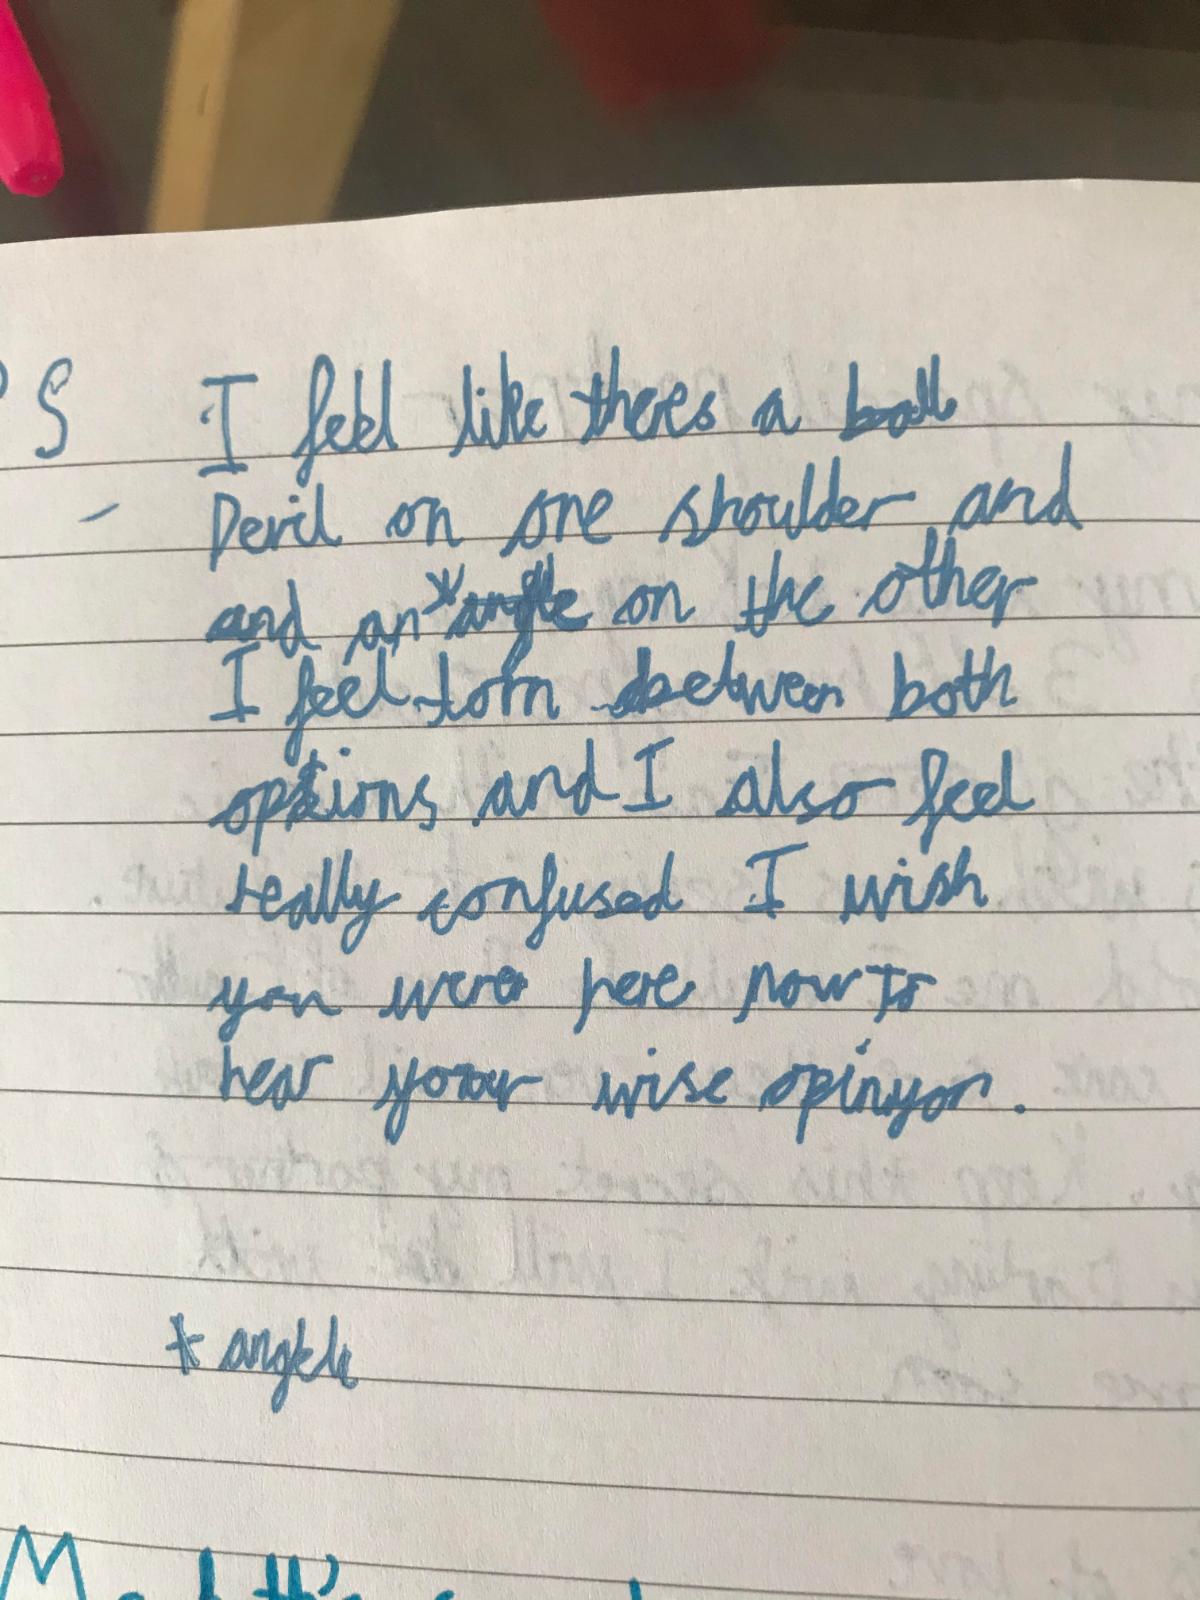 PS I feel like theres a
Devil on one shoulder and
and an * on the other
I feel torn between both
options and I also feel
really confused I wish
you were here now to
hear your wise opinyon.
* angele